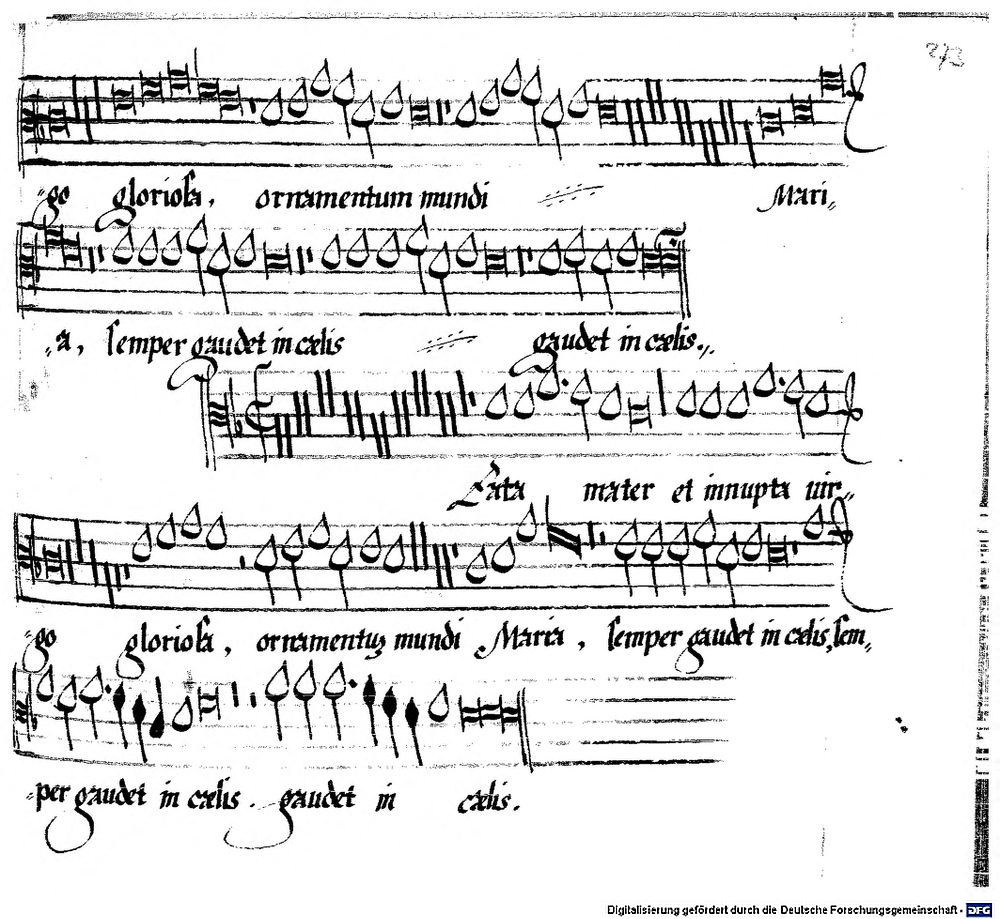 273
go gloriosa, ornamentum mundi Mari„
„a, semper gaudet in cælis gaudet in cælis.„
Lata mater et innupta uir„
go gloriosa, ornamentuꝫ mundi Maria, semper gaudet in cælis, sem„
„per gaudet in cælis. gaudet in cælis.
Digitalisierung gefördert durch die Deutsche Forschungsgemeinschaft - DFG